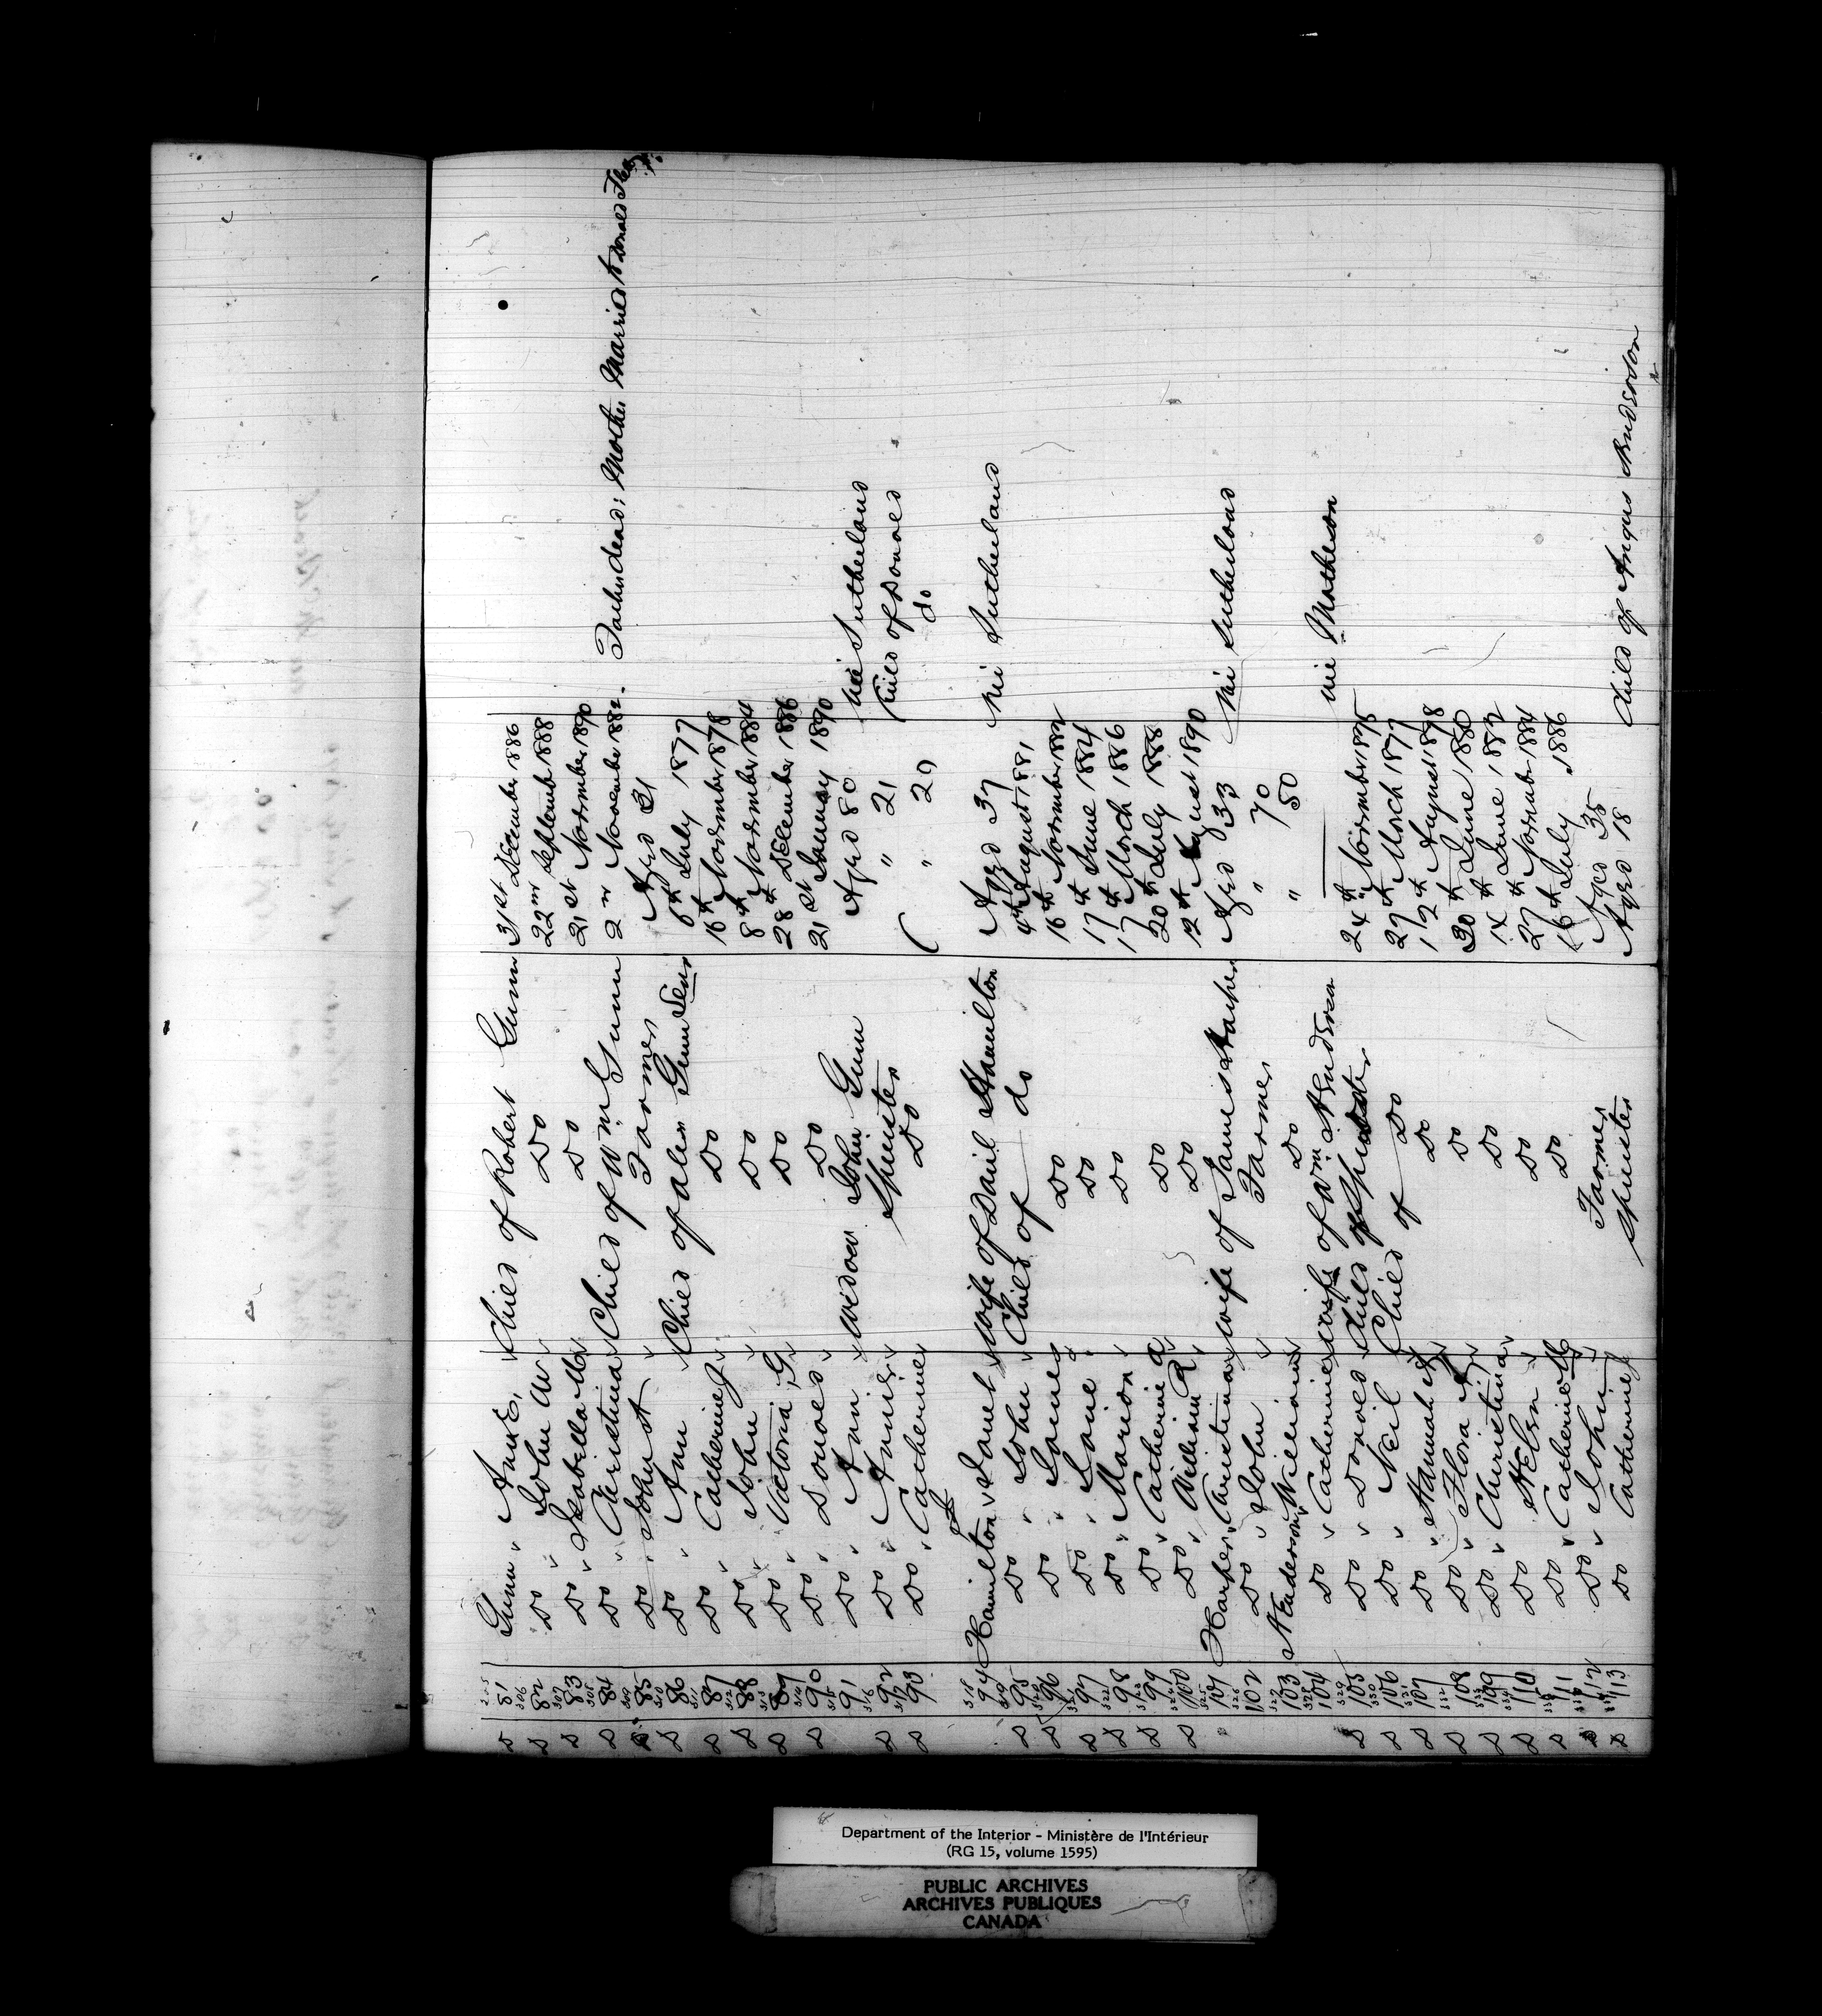 81 Gunn, Ann E, Child of Robert Gunn 31st December 1886
82 Do " John W Do 22nd September 1888
83 Do " Isabella M Do 21st November 1890
84 Do " Christina Child of Wm Gunn 2nd November 1882. Father dead; Mother Married to Donald
85 Do " John A Farmer Aged 21
86 Do " Ann Child of Alex Gunn Senr 6th July 1877
87 Do " Catherine J Do 16th November 1878
88 Do " John Do 8th November 1884
89 Do " Victoria G Do 28th December 1886
90 Do " Donald Do 21st January 1890
91 Do " Ann widow John Gunn Aged 80 née Sutherland
92 Do " Annie Spinster " 21 Child of Donald
93 Do " Catherine Do " 29 do
94 Hamilton, Janet wife of Danl Hamilton Aged 37 née Sutherland
95 Do " John Child of do 4th August 1881
96 Do " James Do 16th November 1882
97 Do " Janie Do 17th June 1884
98 Do " Marion Do 17th March 1886
99 Do " Catherine A Do 20th July 1888
100 Do " William R Do 12th August 1890
101 Harper, Christina wife of James Harper Aged 33 née Sutherland
102 Do " John Farmer " 70
103 Henderson, William Do " 50
104 Do " Catherine wife of Wm Henderson née Matheson
105 Do " Donald Child of 24th November 1875
106 Do " Neil Child of Do 27th March 1877
107 Do " Hannah Do 12th August 1878
108 Do " Flora Do 30th June 1880
109 Do " Christina Do 14th June 1882
110 Do Helen Do 27th November 1884
111 Do " Catherine M Do 16th July 1886
112 Do " John Farmer Aged 35
113 Do Catherine Spinster Aged 18 Child of Angus Henderson
Department of the Interior - Ministère de l'Intérieur
(RG 15, volume 1595)
PUBLIC ARCHIVES
ARCHIVES PUBLIQUES
CANADA